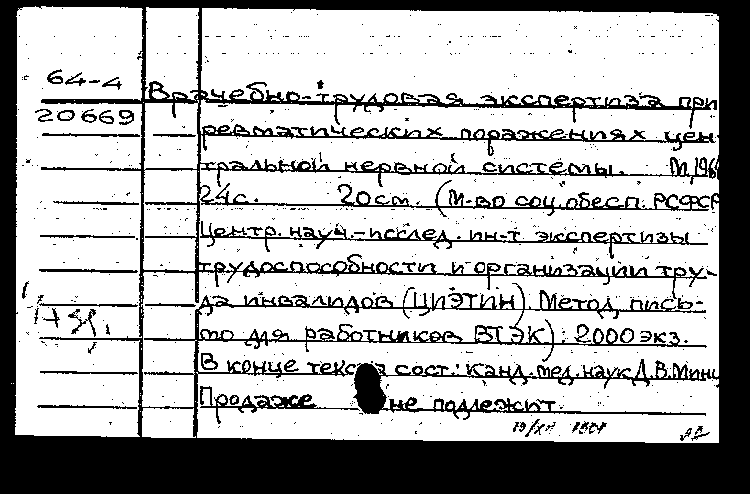 64-4
Врачебно-трудовая экспертиза при
20669
ревматических поражениях цен-
тральной нервной системы. М, 196
24с. 20см. (М-во соц. обесп. РСФСР
Центр. науч.-исслед. ин-т экспертизы
трудоспособности и организации тру-
да инвалидов (ЦИЭТИН). Метод. пись-
мо для работников ВТЭК). 2000 экз.
В конце текста сост.: канд. мед. наук Д.В. Минц
Продаже не подлежит.